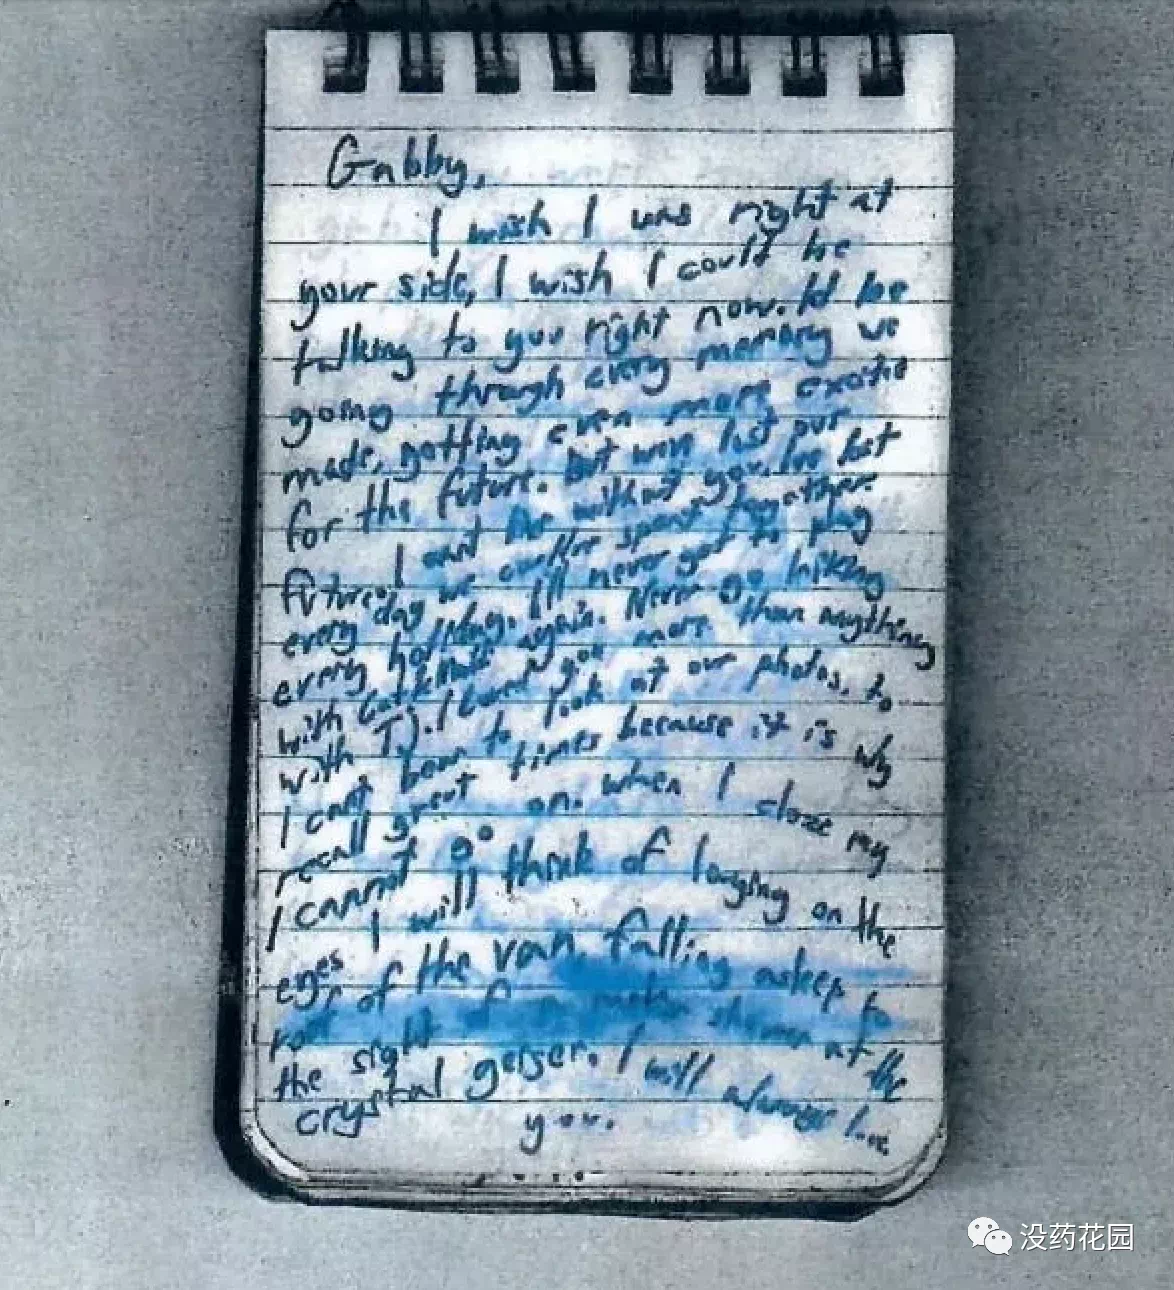 Gabby,
I wish I was right at
your side, I wish I could be
talking to you right now. Id be
going through every memory we
made, getting even more excited
for the future. but we've lost our
future. I can't live without you. I've lost
every day we could've spent together.
every holiday. I'll never get to play
with again. Never go hiking
with TJ. I loved you more than anything
I can't bear to look at our photos, to
recall great times because it is why
I cannot go on. when I close my
eyes I will think of laughing on the
roof of the van, falling asleep to
the sight of at the
crystal geiser. I will always love
you.
没药花园